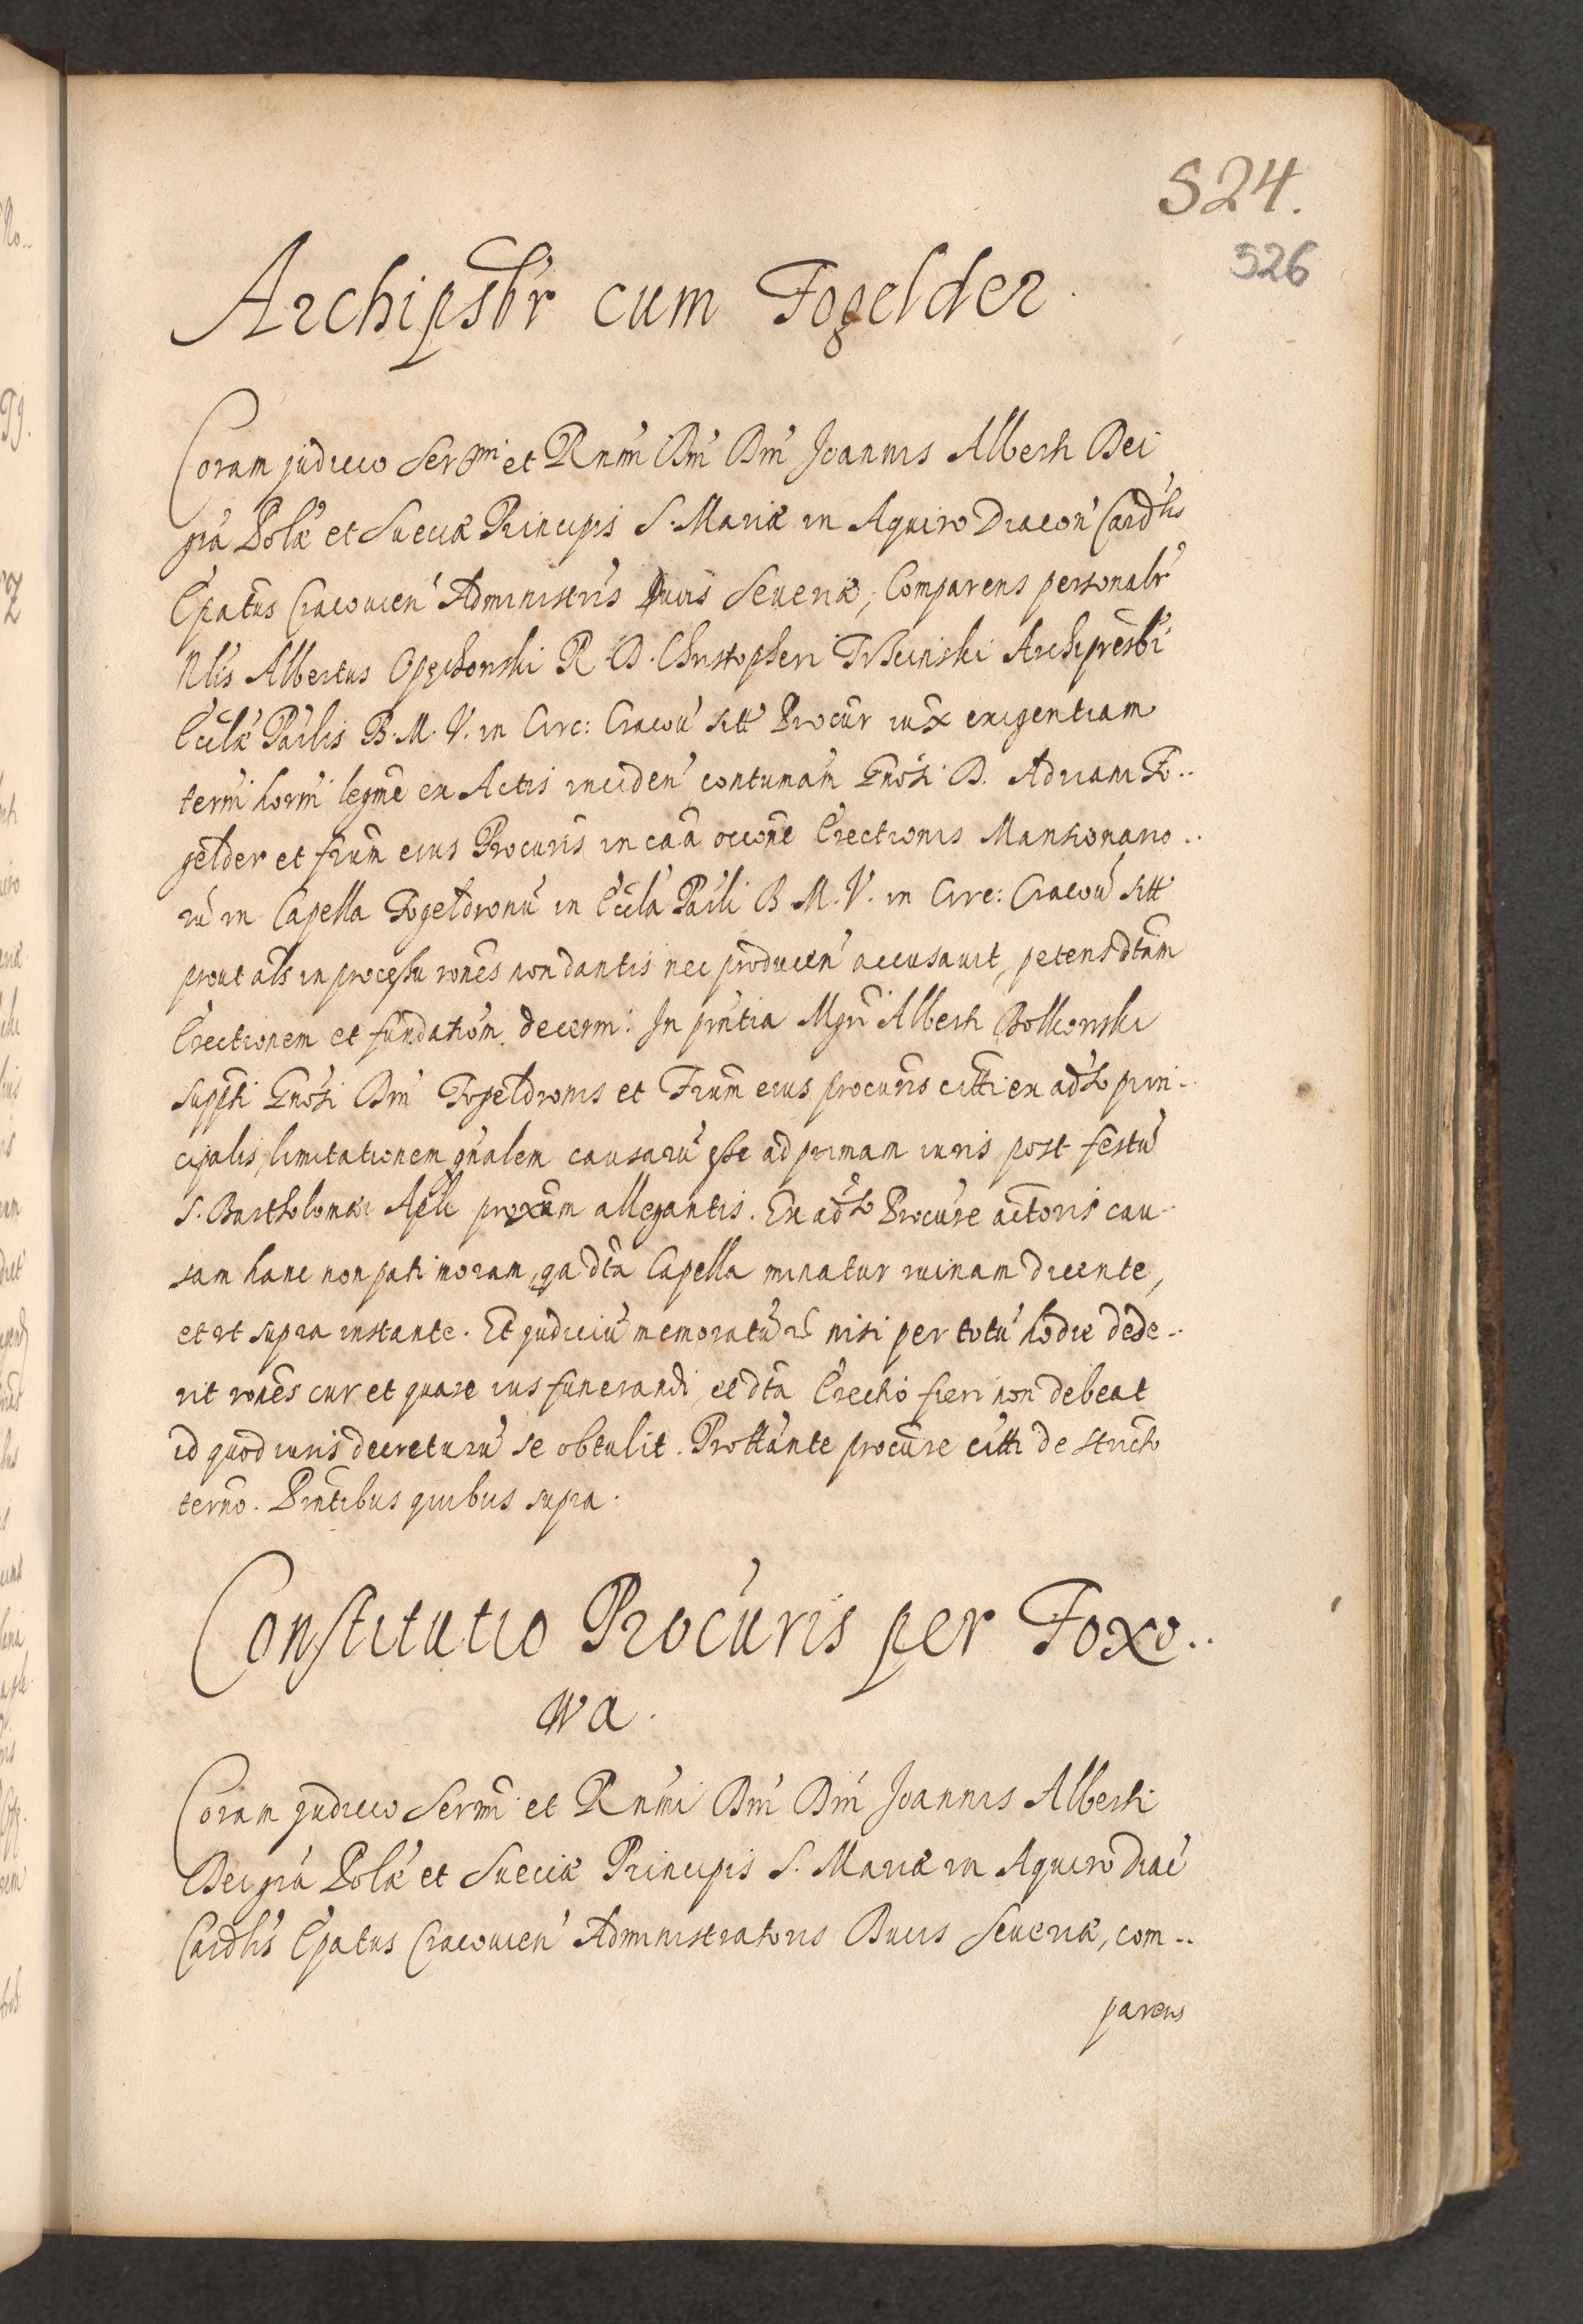 524.
526
Archipsbr cum Fogelder.
Coram judicio Sermi et Rnmi Dni Dni Joannis Alberti Dei
gra Polæ et Sueciæ Principis S. Mariæ in Aquiro Diacon Cardlis
Epatus Cracovien Administris Ducis Severiæ, Comparens personalr
Nlis Albertus Opechowski R. D. Christopheri Trzcinski Archipresbi
Ecclæ Pailis B. M. V. in Circ: Cracov sitt Procur iux exigentiam
termi horni legme ex Actis inciden contumam Gnosi D. Adriani Fo..
gelder et frum eius Procuris in caa occone Erectionis Mansionario..
ru in Capella Fogeldronu in Eccla Paili B. M. V. in Circ: Cracov sitt
prout als in processu rones non dantis nec producen accusavit, petens dtam
Erectionem et fundationm decerni: In pntia Mgri Alberti Bolkowski
suppti Gnosi Dni Fogeldronis et Frum eius procuris citti ex adso prin..
cipalis, limitationem gnalem causaru esse ad primam iuris post festu
S. Bartholomæi Apli proxum allegantis. Ex adso Procure actoris cau..
sam hanc non pati moram, qa dta Capella minatur ruinam dicente,
et ut supra instante. Et judiciu memoratu nisi per totu hodie dede..
rit rones cur et quare ius funerandi, et dta Erectio fieri non debeat
id quod iuris decreturu se obtulit. Prottante procure citti de stricto
termo. Pnntibus quibus supra.
Constitutio Procuris per Foxo..
wa.
Coram judicio Sermi et Rnmi Dni Dni Joannis Alberti
Dei gra Polæ et Sueciæ Principis S. Mariæ in Aquiro Diac
Cardlis Epatus Cracovien Administratoris Ducis Severiæ, com..
parens